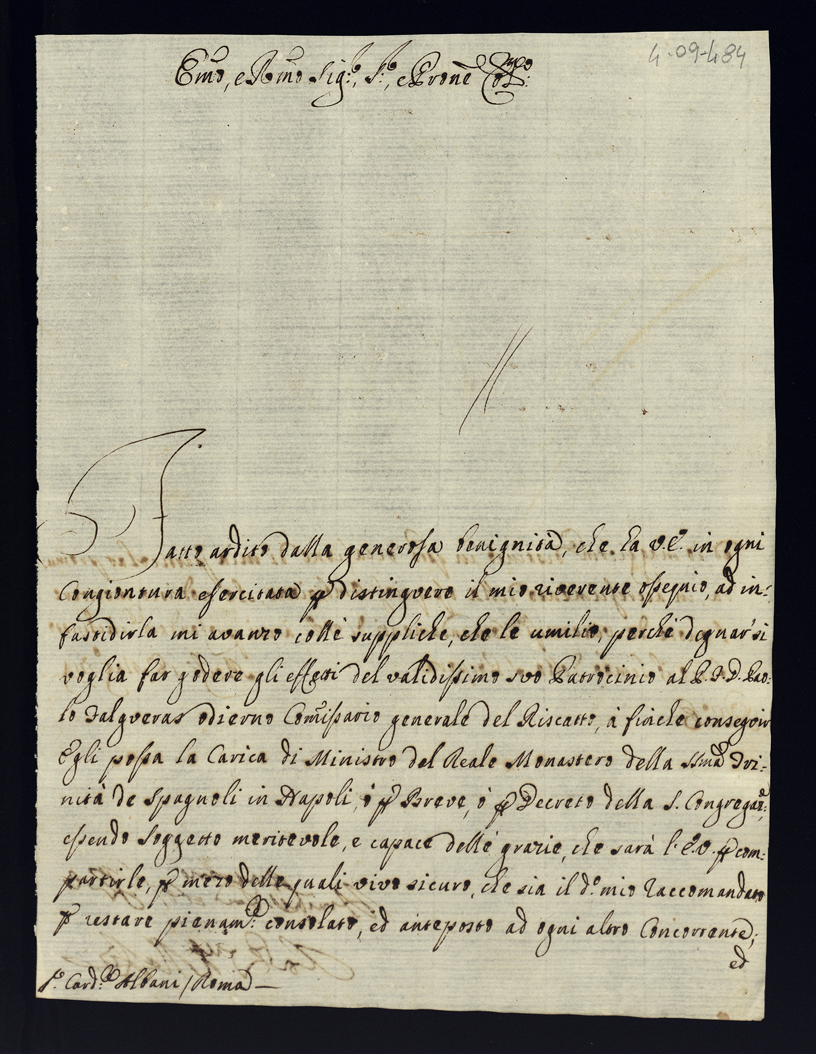 4-09-484
Emo, e Rmo Sig.re, S.re, e Prone Col.mo
Fatto ardito dalla generosa benignità, che la V.E. in ogni
Congiontura esercitata p distinguere il mio riverente ossequio, ad in=
fastidirla mi avanzo colle suppliche, che le umilio, perche degnar si
voglia far godere gli effetti del validissimo suo Patrocinio al P. F. D. Pao=
lo Falgueras odierno Comissario generale del Riscatto, à finche conseguir
Egli possa la Carica di Ministro del Reale Monastero della SSma Tri=
nità de Spagnoli in Napoli, ò p Breve, ò p Decreto della S. Congregaz.e,
essendo soggetto meritevole, e capace delle grazie, che sarà l'E.V. p com=
partirle, p mezo delle quali vivo sicuro, che sia il d.o mio Raccomandato
p restare pienam.te consolato, ed anteposto ad ogni altro Concorrente;
ed
S.r Card.le Albani / Roma